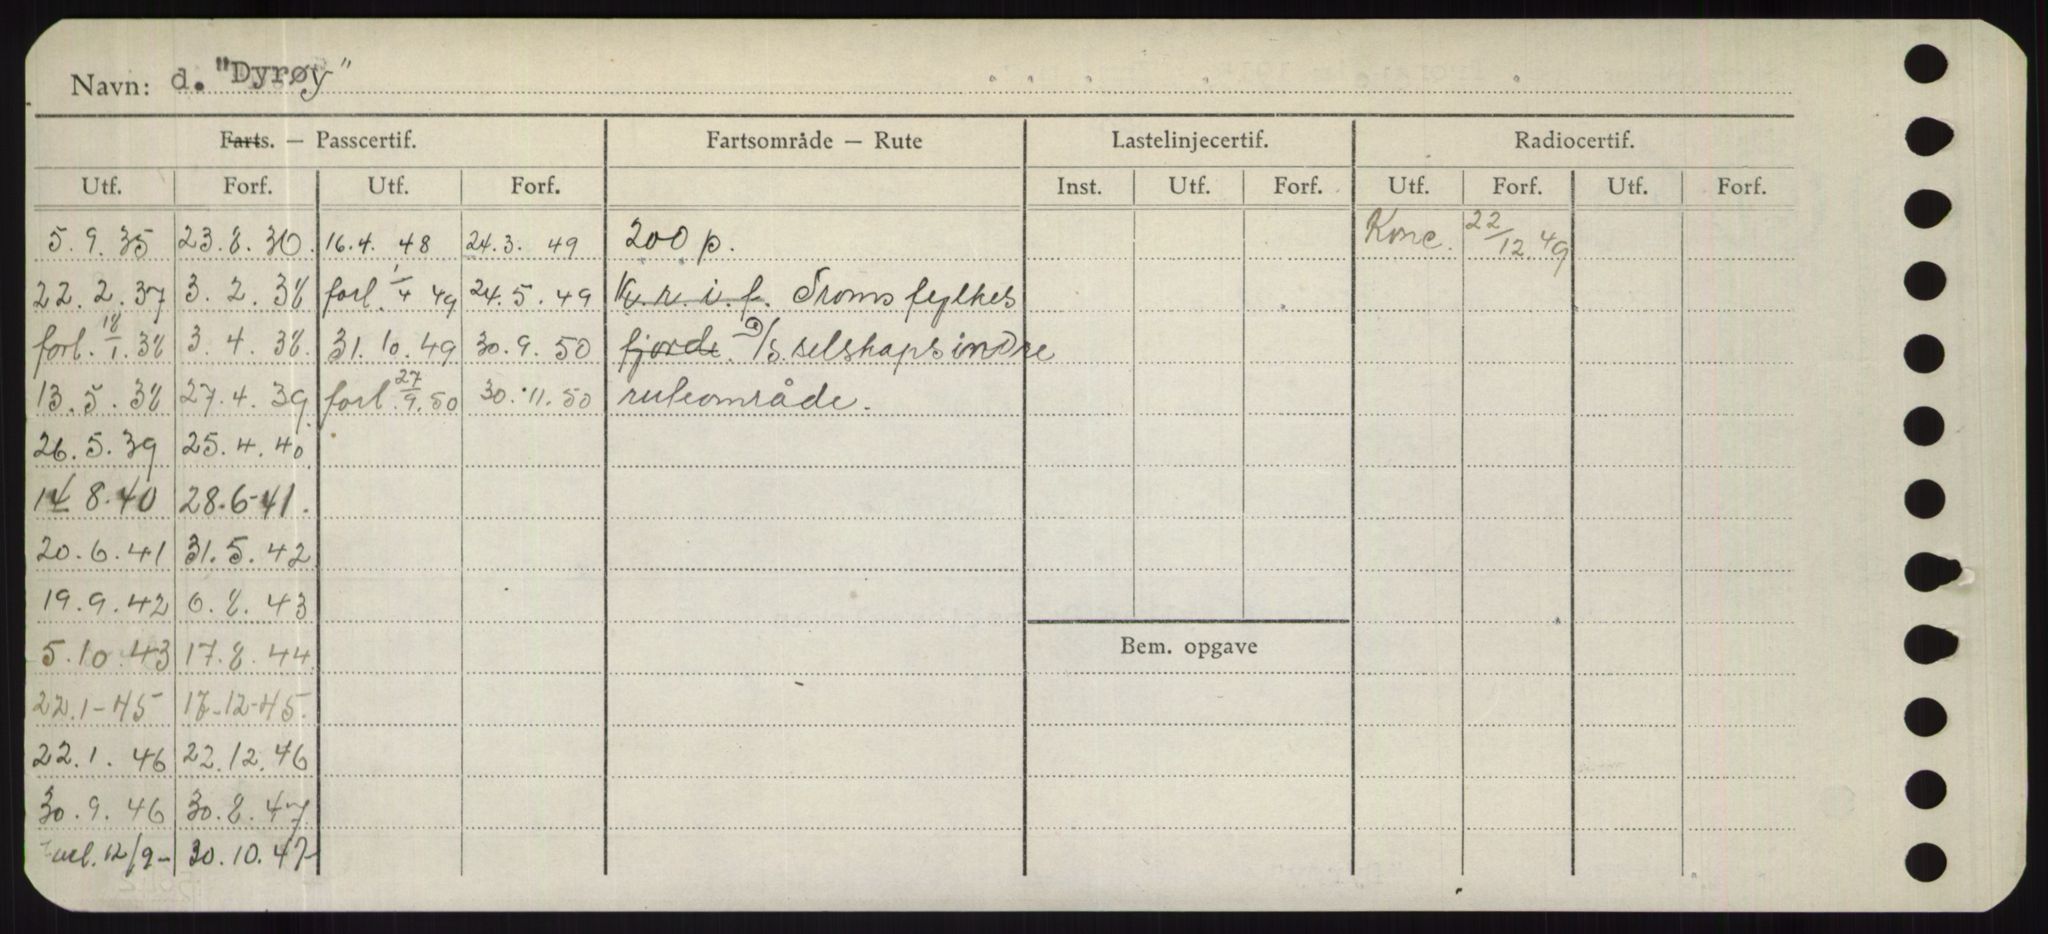 Navn: d. "Dyrøy"
Farts. — Passcertif. Fartsområde — Rute Lastelinjecertif. Radiocertif.
Utf. Forf. Utf. Forf. Inst. Utf. Forf. Utf. Forf. Utf. Forf.
5. 9. 35 23. 8. 36. 16. 4. 48 24. 3. 49 200 p. Konc. 22/12. 49
22. 2. 37 3. 2. 38 forl. 1/4 49 24. 5. 49 i. f. Troms fylkes
forl. 18/1. 38 3. 4. 38. 31. 10. 49 30. 9. 50 fjorde. D/S. selskaps indre
13. 5. 38 27. 4. 39. forl. 27/9. 50 30. 11. 50 ruteområde.
26. 5. 39 25. 4. 40
14 8. 40 28. 6-41.
20. 6. 41 31. 5. 42
19. 9. 42 6. 8. 43
5. 10. 43 17. 8. 44
22. 1-45 17-12-45.
22. 1. 46 22. 12. 46
30. 9. 46 30. 8. 47
forl. 12/9- 30. 10. 47-
Bem. opgave